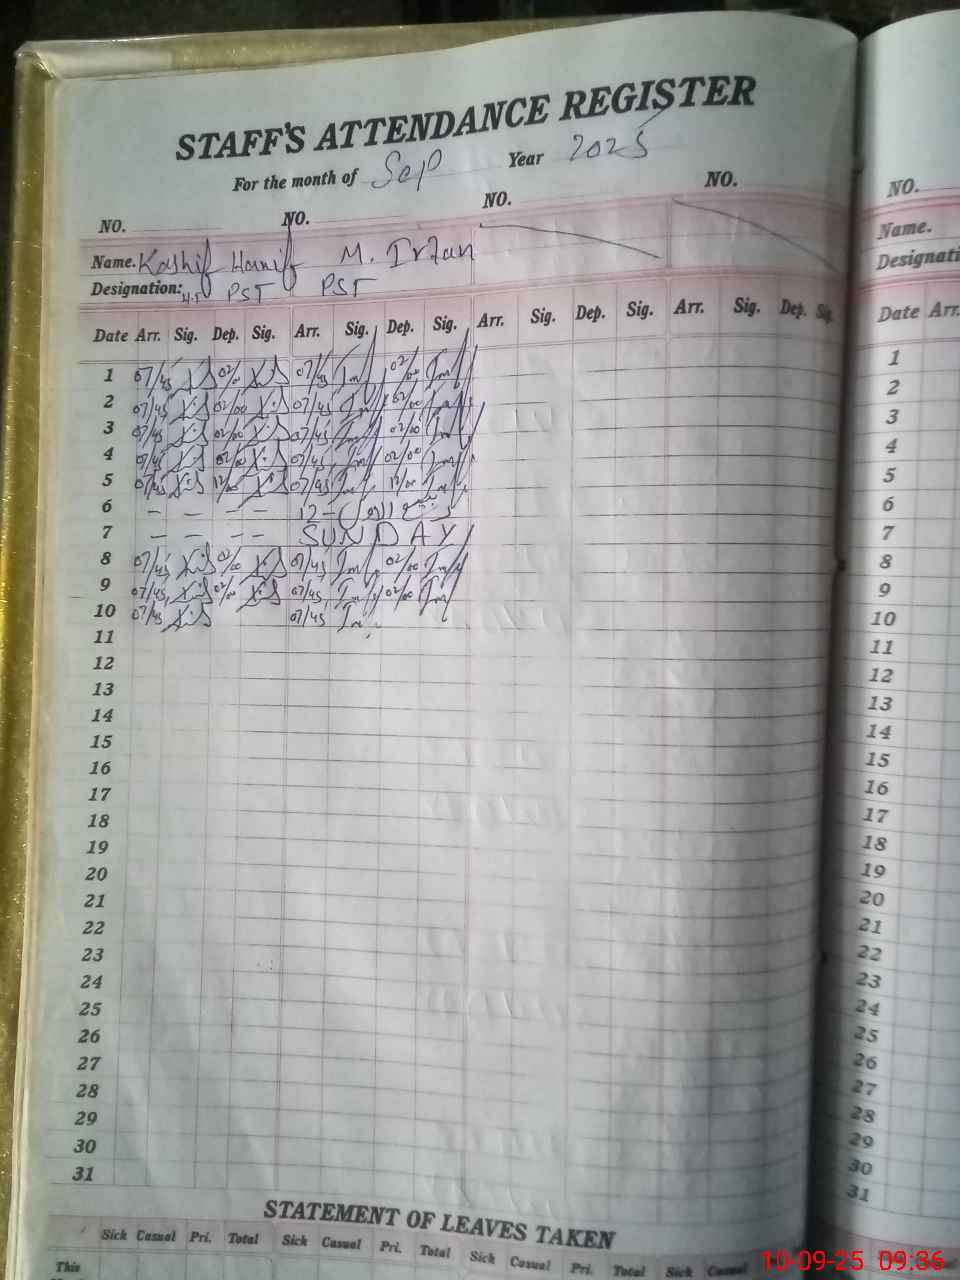 STAFF'S ATTENDANCE REGISTER
For the month of Sep Year 2025
NO. NO. NO. NO.
Name. Kashif Hanif M. Irfan
Designation: H.T PST PST
Date Arr. Sig. Dep. Sig. Arr. Sig. Dep. Sig. Arr. Sig. Dep. Sig. Arr. Sig. Dep. Sig.
1 07/45 02/00 07/45 02/00
2 07/45 02/00 07/45 02/00
3 07/45 02/00 07/45 02/00
4 07/45 02/00 07/45 02/00
5 07/45 12/00 07/45 12/00
6 – – – – 12 – ربیع الاول
7 – – – – SUNDAY
8 07/45 02/00 07/45 02/00
9 07/45 02/00 07/45 02/00
10 07/45 07/45
11
12
13
14
15
16
17
18
19
20
21
22
23
24
25
26
27
28
29
30
31
STATEMENT OF LEAVES TAKEN
Sick Casual Pri. Total Sick Casual Pri. Total Sick Casual Pri. Total Sick Casual
This
NO.
Name.
Designati
Date Arr.
1
2
3
4
5
6
7
8
9
10
11
12
13
14
15
16
17
18
19
20
21
22
23
24
25
26
27
28
29
30
31
10-09-25 09:36